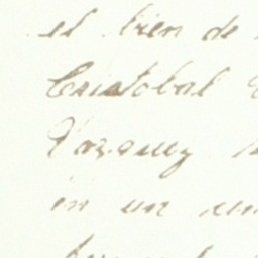 el bien de
Cristobal
Vazquez
en un